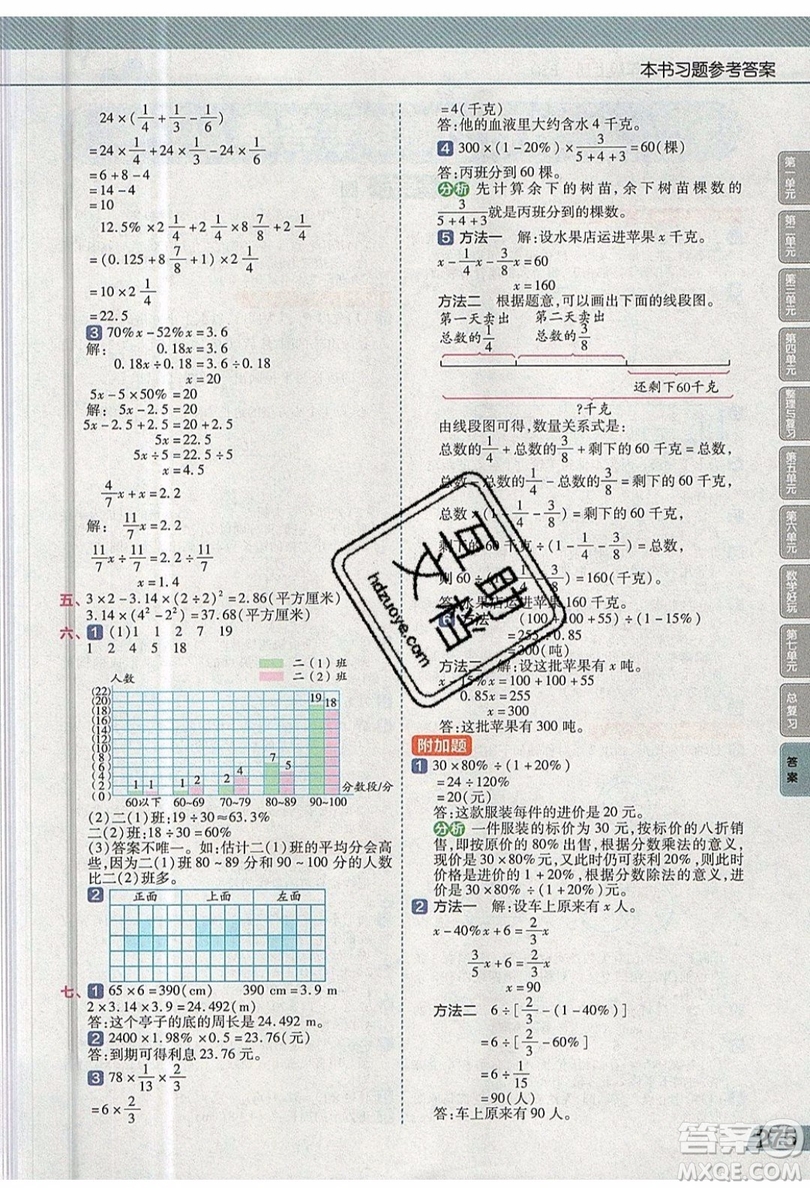 本书习题参考答案
24×(1/4+1/3-1/6)
=24×1/4+24×1/3-24×1/6
=6+8-4
=14-4
=10
12.5%×2 1/4+2 1/4×8 7/8+2 1/4
=(0.125+8 7/8+1)×2 1/4
=10×2 1/4
=22.5
3 70%x-52%x=3.6
解: 0.18x=3.6
0.18x÷0.18=3.6÷0.18
x=20
5x-5×50%=20
解: 5x-2.5=20
5x-2.5+2.5=20+2.5
5x=22.5
5x÷5=22.5÷5
x=4.5
4/7x+x=2.2
解: 11/7x=2.2
11/7x÷11/7=2.2÷11/7
x=1.4
五、3×2-3.14×(2÷2)²=2.86(平方厘米)
3.14×(4²-2²)=37.68(平方厘米)
六、1 (1)1 1 2 7 19
1 2 4 5 18
二(1)班
二(2)班
人数
(22)
(20)
(18)
(16)
(14)
(12)
(10)
(8)
(6)
(4)
(2)
(0)
1 1 1 2 2 4 7 5 19 18
分数段/分
60以下 60~69 70~79 80~89 90~100
(2)二(1)班:19÷30≈63.3%
二(2)班:18÷30=60%
(3)答案不唯一。如:估计二(1)班的平均分会高
些,因为二(1)班80~89分和90~100分的人数
比二(2)班多。
2 正面 上面 左面
七、1 65×6=390(cm) 390cm=3.9m
2×3.14×3.9=24.492(m)
答:这个亭子的底的周长是24.492m。
2 2400×1.98%×0.5=23.76(元)
答:到期可得利息23.76元。
3 78×1/13×2/3
=6×2/3
=4(千克)
答:他的血液里大约含水4千克。
4 300×(1-20%)×3/(5+4+3)=60(棵)
答:丙班分到60棵。
分析 先计算余下的树苗,余下树苗棵数的
3/(5+4+3)就是丙班分到的棵数。
5 方法一 解:设水果店运进苹果x千克。
x-1/4x-3/8x=60
x=160
方法二 根据题意,可以画出下面的线段图。
第一天卖出 第二天卖出
总数的1/4 总数的3/8
还剩下60千克
?千克
由线段图可得,数量关系式是:
总数×1/4+总数×3/8+剩下的60千克=总数,
总数-总数×1/4-总数×3/8=剩下的60千克,
总数×(1-1/4-3/8)=剩下的60千克,
剩下的60千克÷(1-1/4-3/8)=总数,
则60÷(1-1/4-3/8)=160(千克)。
答:水果店运进苹果160千克。
6 方法一 (100+100+55)÷(1-15%)
=255÷0.85
=300(吨)
方法二 解:设这批苹果有x吨。
x-15%x=100+100+55
0.85x=255
x=300
答:这批苹果有300吨。
附加题
1 30×80%÷(1+20%)
=24÷120%
=20(元)
答:这款服装每件的进价是20元。
分析 一件服装的标价为30元,按标价的八折销
售,即按原价的80%出售,根据分数乘法的意义,
现价是30×80%元,这时仍可获利20%,则此时的
价格是进价的1+20%,根据分数除法的意义,进
价是30×80%÷(1+20%)元。
2 方法一 解:设车上原来有x人。
x-40%x+6=2/3x
3/5x+6=2/3x
x=90
方法二 6÷[2/3-(1-40%)]
=6÷[2/3-60%]
=6÷1/15
=90(人)
答:车上原来有90人。
第一单元
第二单元
第三单元
第四单元
整理与复习
第五单元
第六单元
数学好玩
第七单元
总复习
答案
早助
文档
hdzuoye.com
275
答案
MXQE.COM